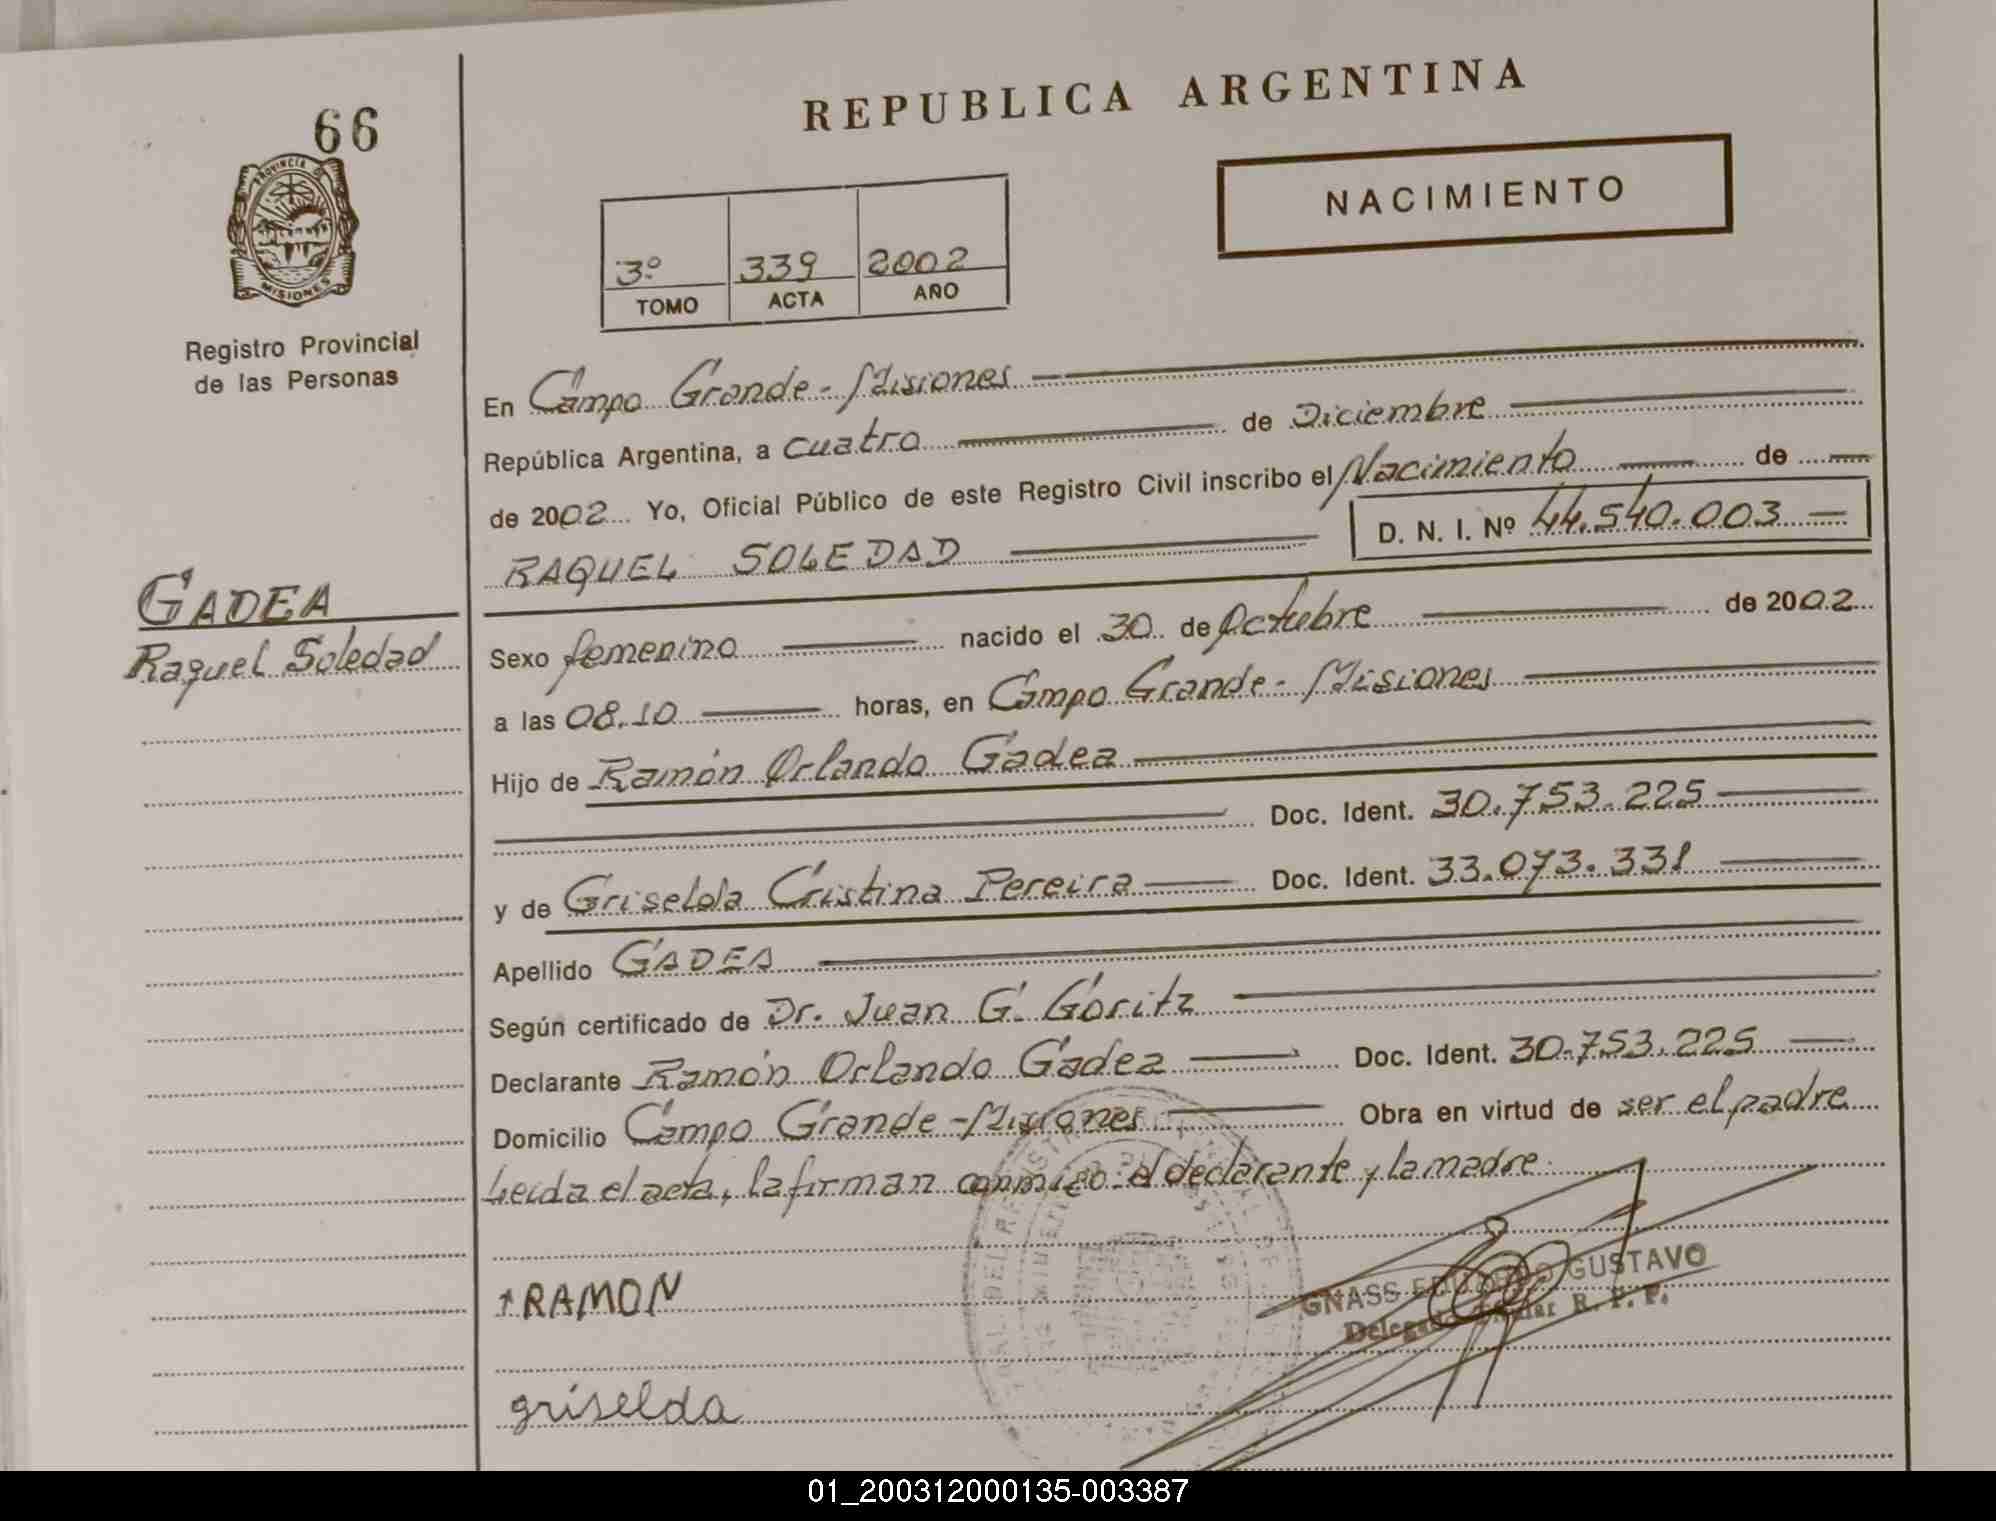 66
PROVINCIA DE
MISIONES
Registro Provincial
de las Personas
GADEA
Raquel Soledad
REPUBLICA ARGENTINA
NACIMIENTO
3º 339 2002
TOMO ACTA AÑO
En Campo Grande - Misiones
República Argentina, a cuatro de Diciembre
de 2002 Yo, Oficial Público de este Registro Civil inscribo el Nacimiento de
RAQUEL SOLEDAD D. N. I. Nº 44.540.003
Sexo femenino nacido el 30 de Octubre de 2002
a las 08.10 horas, en Campo Grande - Misiones
Hijo de Ramón Orlando Gadea
Doc. Ident. 30.753.225
y de Griselda Cristina Pereira Doc. Ident. 33.073.331
Apellido GADEA
Según certificado de Dr. Juan G. Goritz
Declarante Ramón Orlando Gadea Doc. Ident. 30.753.225
Domicilio Campo Grande - Misiones Obra en virtud de ser el padre
Leída el acta, la firman conmigo el declarante y la madre.
RAMON
GNASS EDUARDO GUSTAVO
Delegado Titular R. P. P.
griselda
01_200312000135-003387